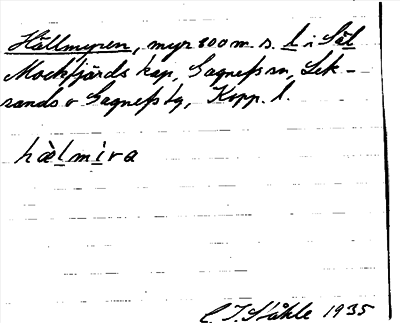 Hällmyren, myr 800 m. s. l i Säl
Mockfjärds kap, Gagnefs sn, Lek-
sands o Gagnefs tg, Kopp. l.
hàlmìra
C. I. Ståhle 1935